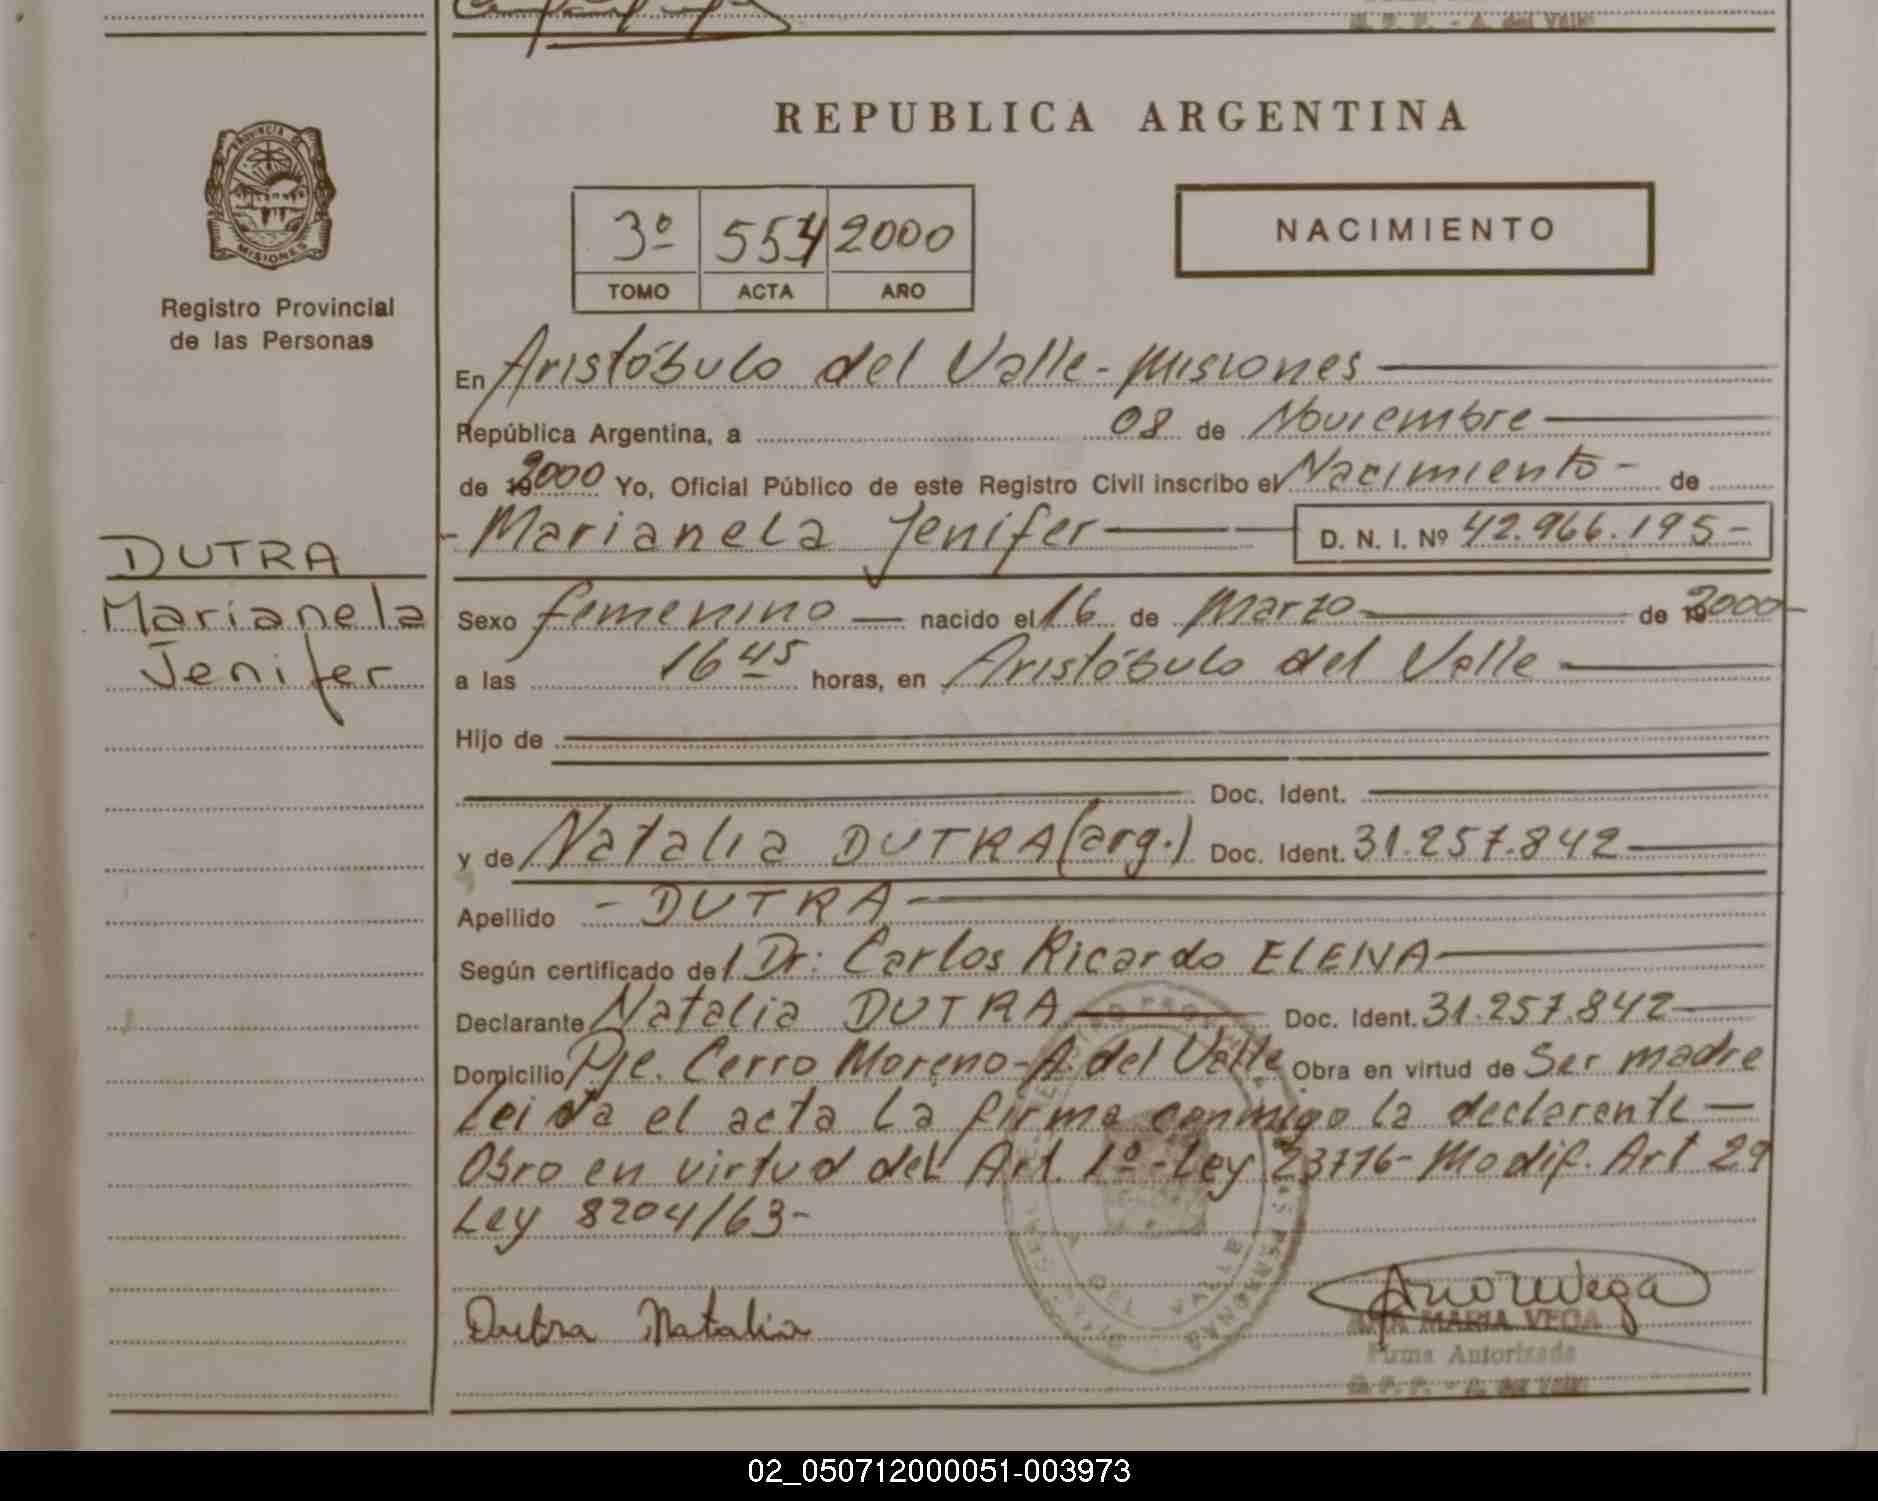 REPUBLICA ARGENTINA
PROVINCIA DE
MISIONES
Registro Provincial
de las Personas
3º 554 2000
TOMO ACTA AÑO
NACIMIENTO
En Aristóbulo del Valle - Misiones
República Argentina, a 08 de Noviembre
de 2000 Yo, Oficial Público de este Registro Civil inscribo el Nacimiento - de
- Marianela Jenifer D. N. I. Nº 42.966.195 -
DUTRA
Marianela
Jenifer
Sexo femenino nacido el 16 de Marzo de 2000 -
a las 16 45 horas, en Aristóbulo del Valle
Hijo de
Doc. Ident.
y de Natalia DUTRA (arg.) Doc. Ident. 31.257.842
Apellido - DUTRA
Según certificado del Dr: Carlos Ricardo ELENA
Declarante Natalia DUTRA Doc. Ident. 31.257.842
Domicilio Pje. Cerro Moreno - A. del Valle Obra en virtud de Ser madre
Leida el acta la firma conmigo la declarante
Obro en virtud del Art. 1º - Ley 23776 - Modif. Art 29
Ley 8204/63 -
Dutra Natalia
ANA MARIA VEGA
Firma Autorizada
02_050712000051-003973